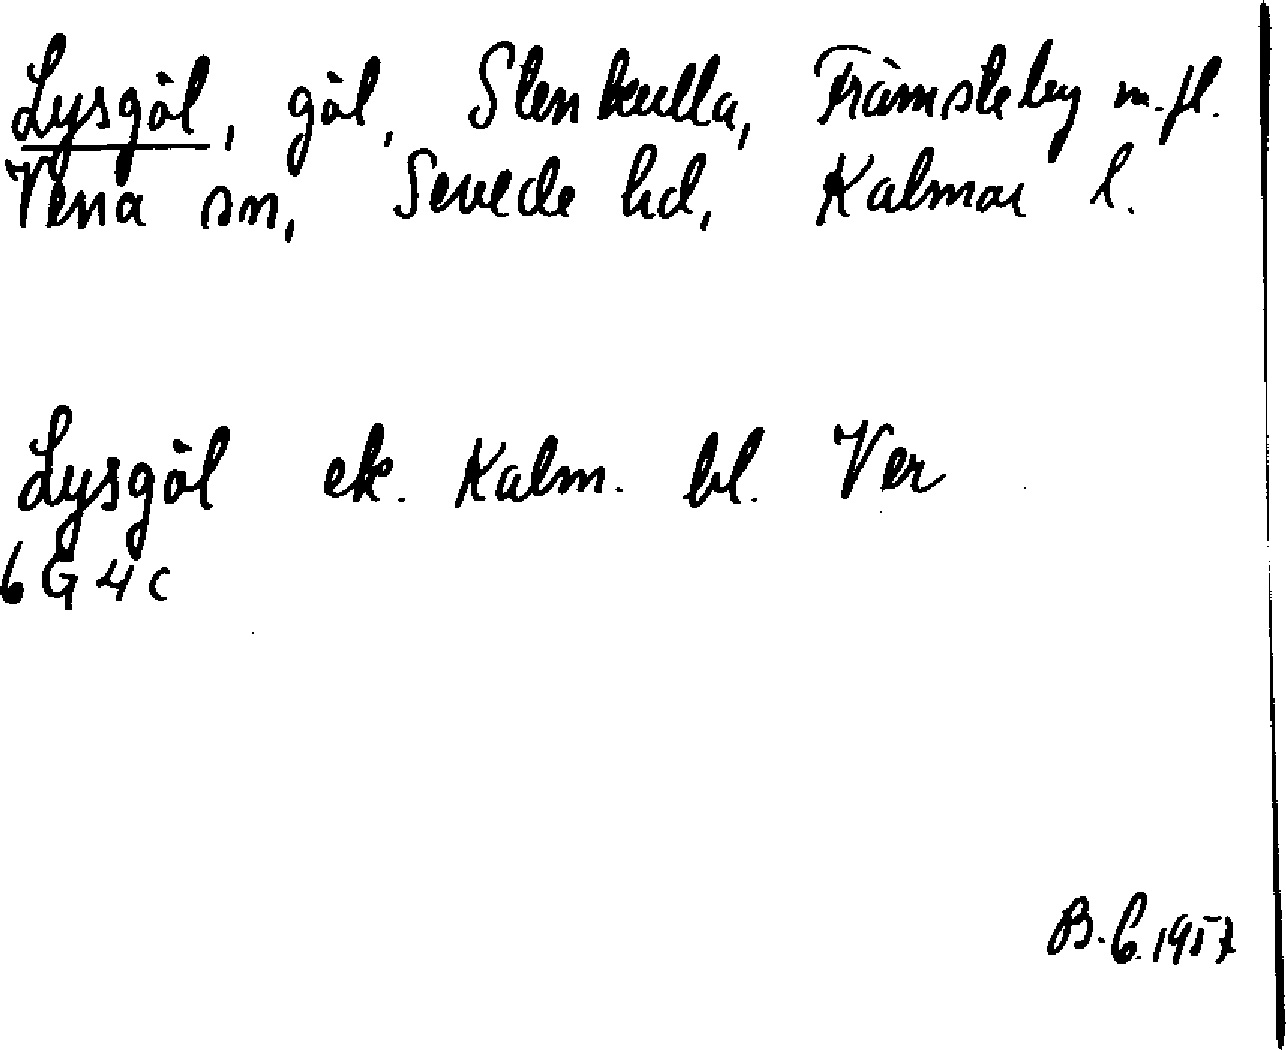 Lysgöl, göl, Stenkulla, Främsteby m.fl.
Vena sn, Sevede hd, Kalmar l.
Lysgöl ek. Kalm. bl. Ver
6 G 4 c
B.C. 1957